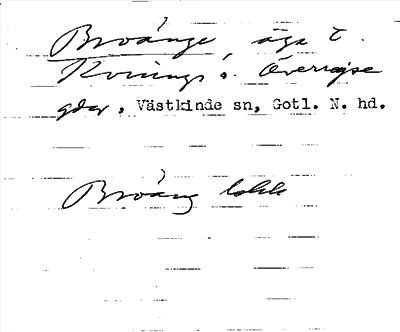 Broänge, äga t.
Kvinings o. Överrojse
gdar, Västkinde sn, Gotl. N. hd.
Broäng lokk